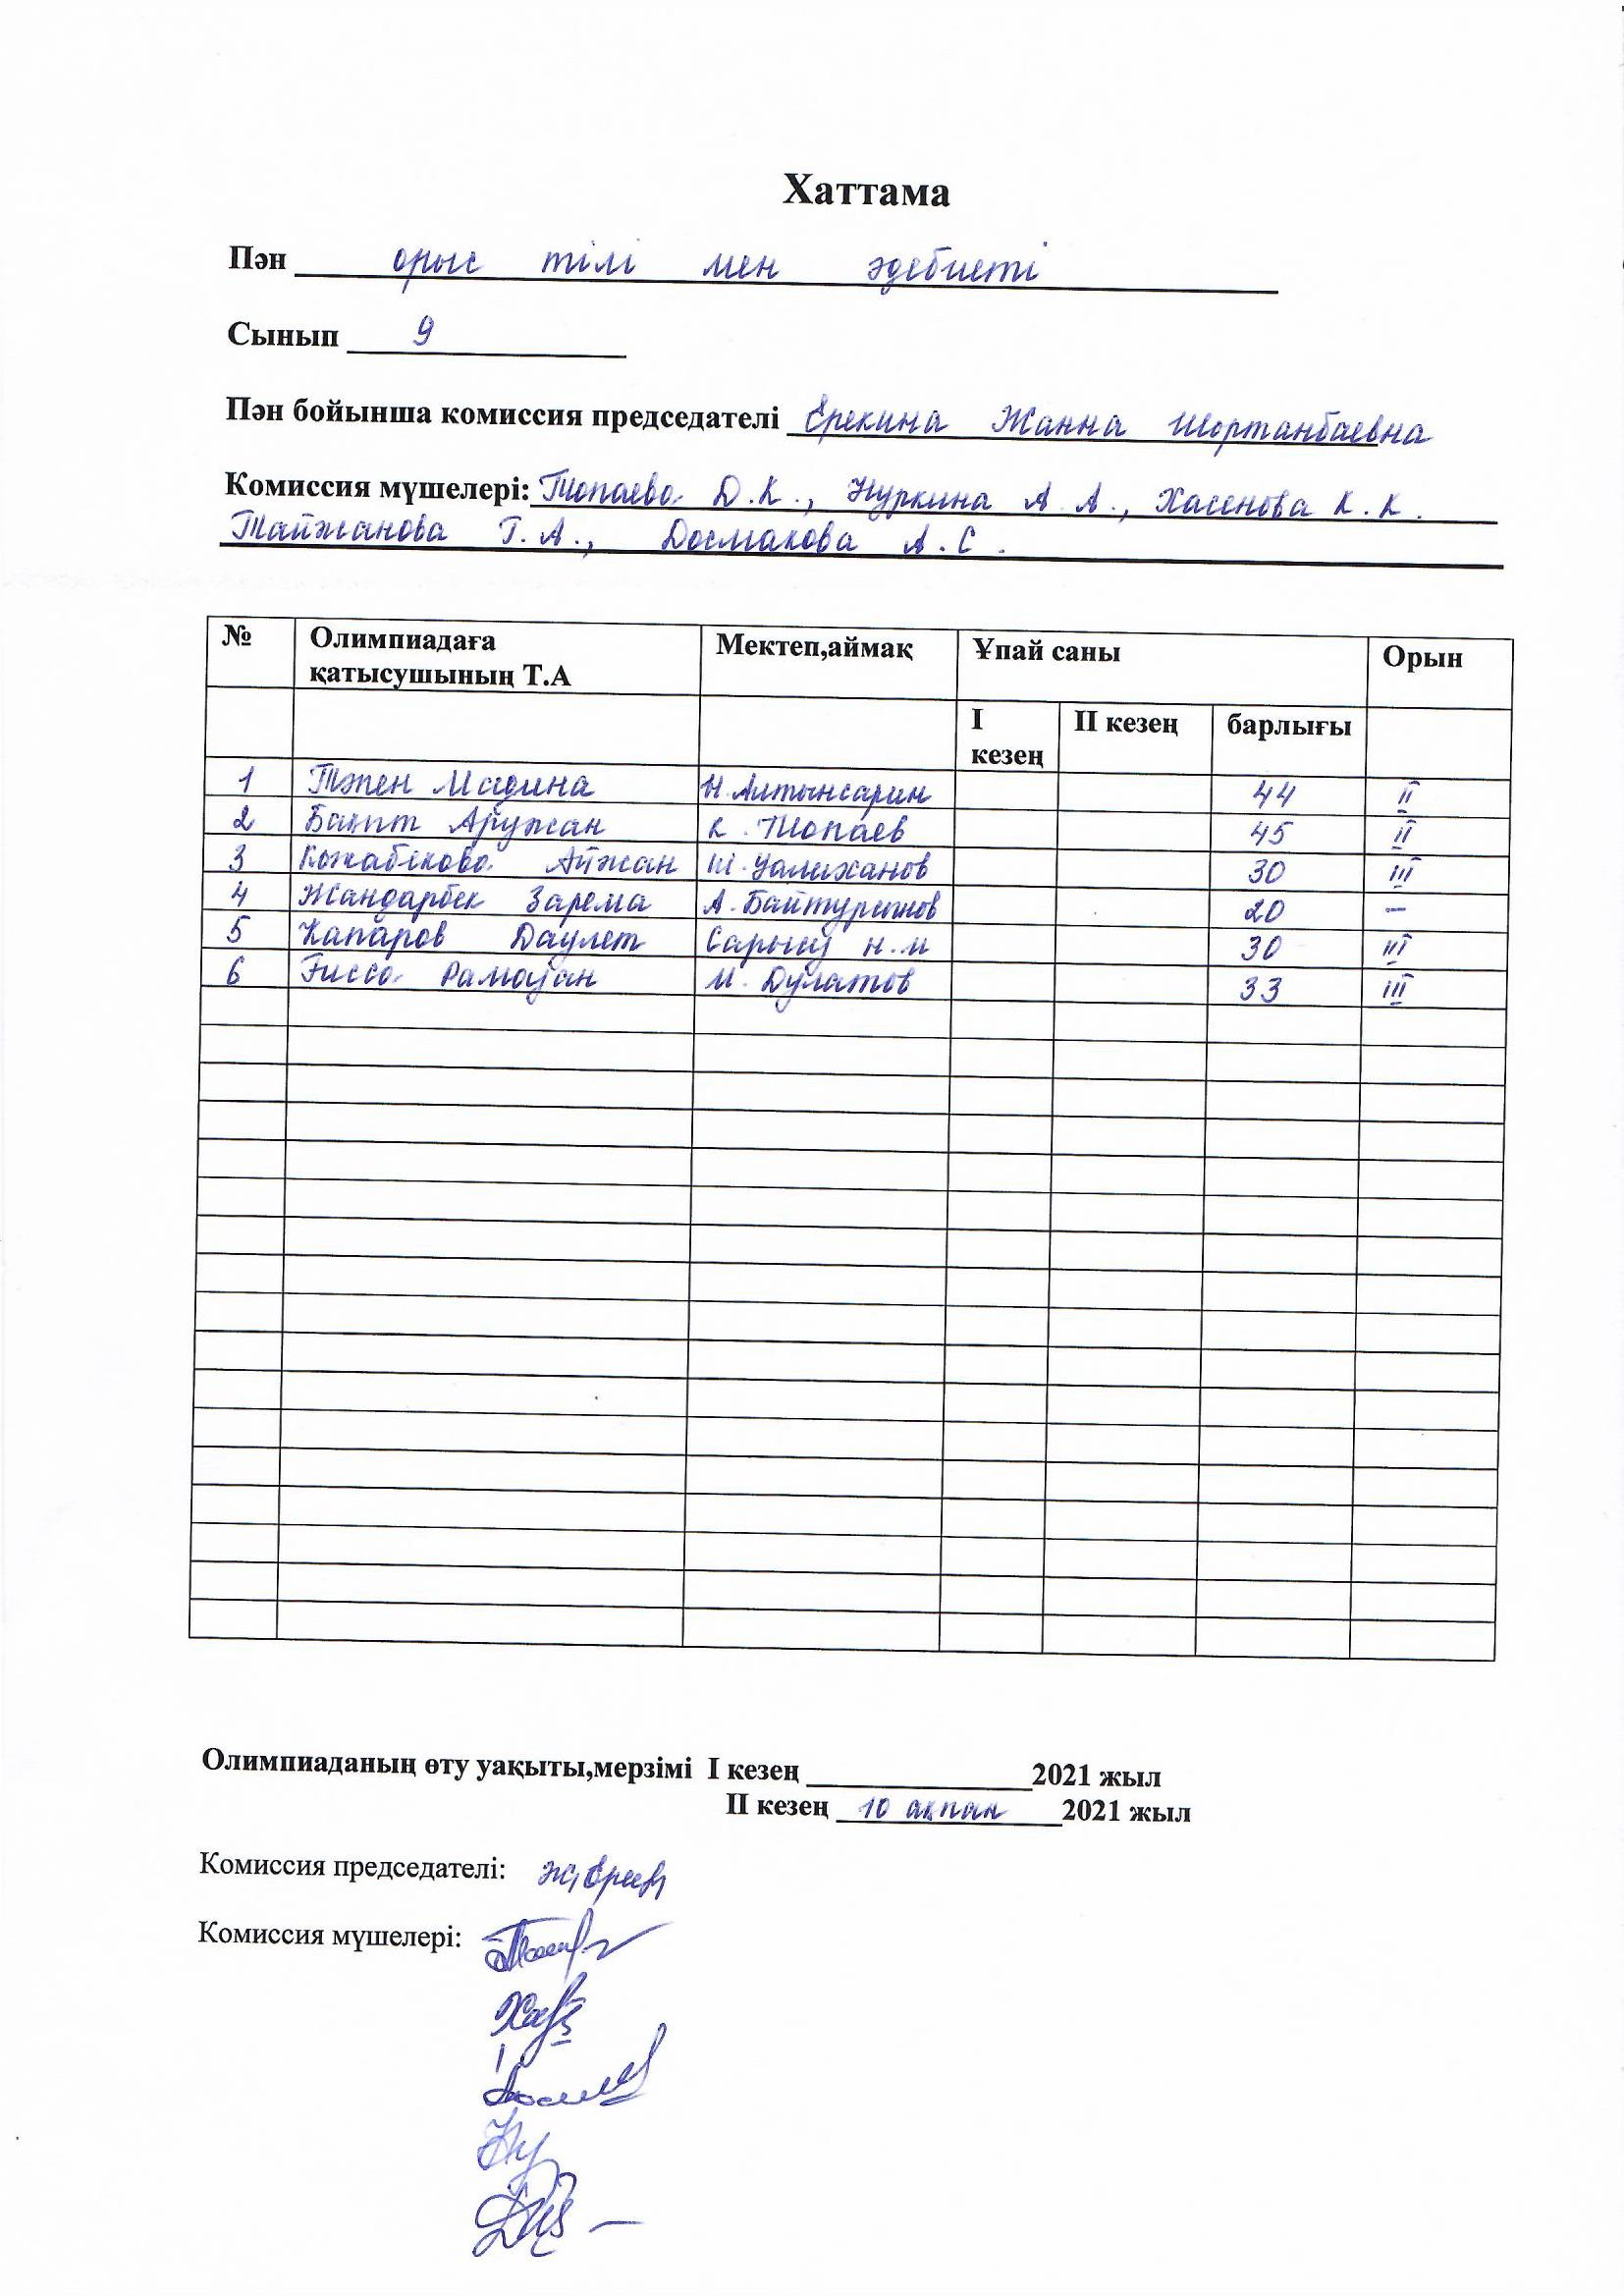 Хаттама
Пән орыс тілі мен әдебиеті
Сынып 9
Пән бойынша комиссия председателі Ерекина Жанна Шортанбаевна
Комиссия мүшелері: Топаева Д.К., Нуркина А.А., Хасенова К.К.
Тайжанова Г.А., Досмакова А.С.
№ Олимпиадаға қатысушының Т.А Мектеп,аймақ Ұпай саны Орын
І кезең ІІ кезең барлығы
1 Тәжен Мадина Ы.Алтынсарин 44 ІІ
2 Бақыт Аружан К.Топаев 45 ІІ
3 Кожабекова Айжан Ш.Уалиханов 30 ІІІ
4 Жандарбек Зарема А.Байтурсынов 20 –
5 Капаров Даулет Сарысу н.м 30 ІІІ
6 Ғисса Рамазан М.Дулатов 33 ІІІ
Олимпиаданың өту уақыты,мерзімі І кезең 2021 жыл
ІІ кезең 10 ақпан 2021 жыл
Комиссия председателі:
Комиссия мүшелері: